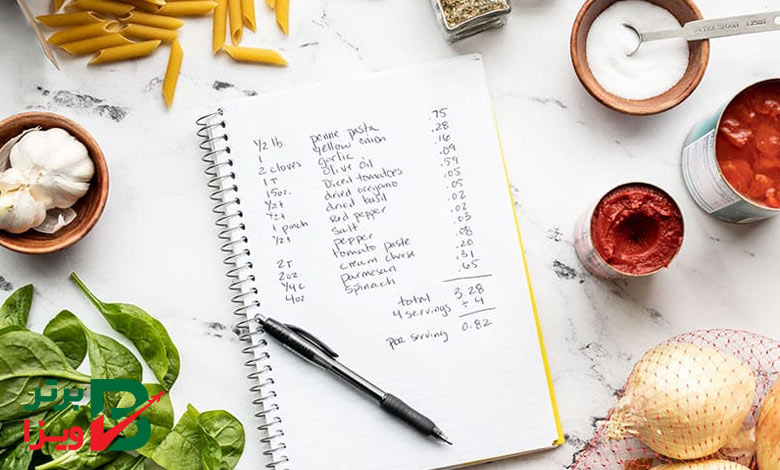 1/2 lb penne pasta .75
1 yellow onion .28
2 cloves garlic .16
1 T olive oil .09
15oz. Diced tomatoes .59
1/2 t dried oregano .05
1/2 t dried basil .05
1 pinch Red pepper .02
1/2 t salt .02
pepper .03
2T tomato paste .08
2oz cream cheese .20
1/4 c Parmesan .31
4oz spinach .65
total 3.28
4 servings ÷ 4
per serving 0.82
برتر
ویزا
B